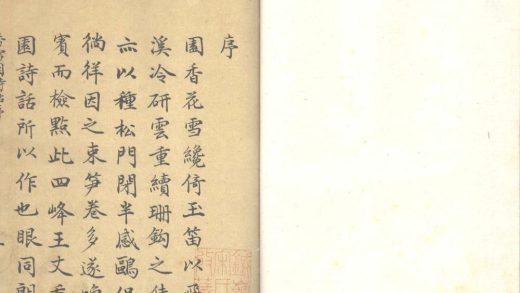 序
園香花雪纔倚玉笛以飛
溪冷研雲重續珊鈎之佳
亦以種松門閉半感鷗侶
徜徉因之束笋卷多遂喚
賓而檢點此四峰王丈香
園詩話所以作也眼同朗